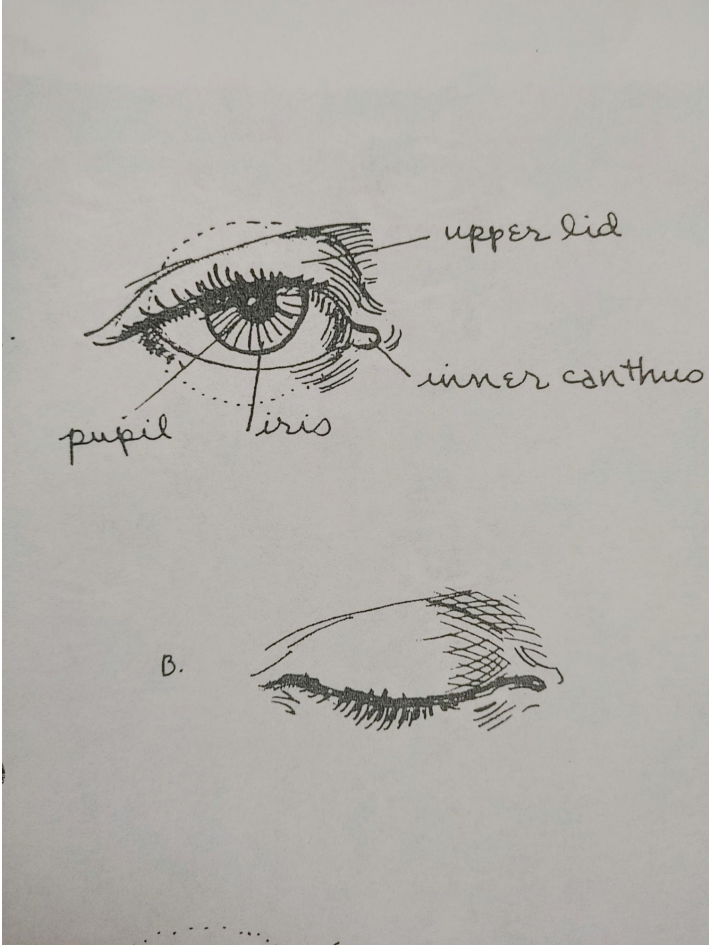 upper lid
inner canthus
pupil
iris
B.